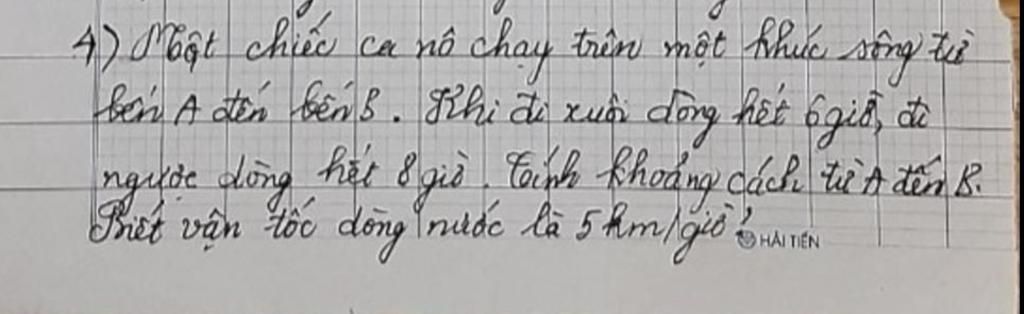 4) Một chiếc ca nô chạy trên một khúc sông từ
bến A đến bến B. Khi đi xuôi dòng hết 6 giờ, đi
ngược dòng hết 8 giờ. Tính khoảng cách từ A đến B.
Biết vận tốc dòng nước là 5 km/giờ?
HẢI TIẾN